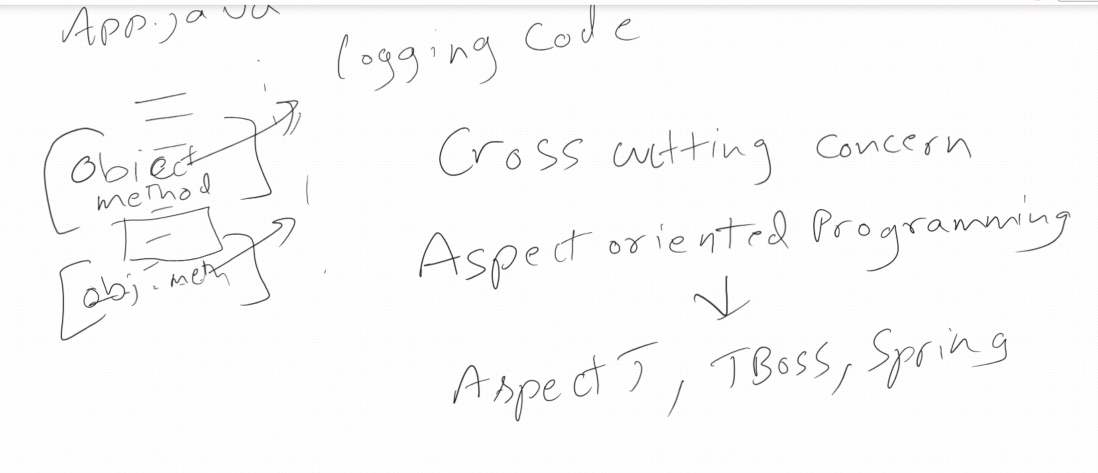 App.java
logging code
Object
method
obj.meth
Cross cutting concern
Aspect oriented Programming
AspectJ, JBoss, Spring